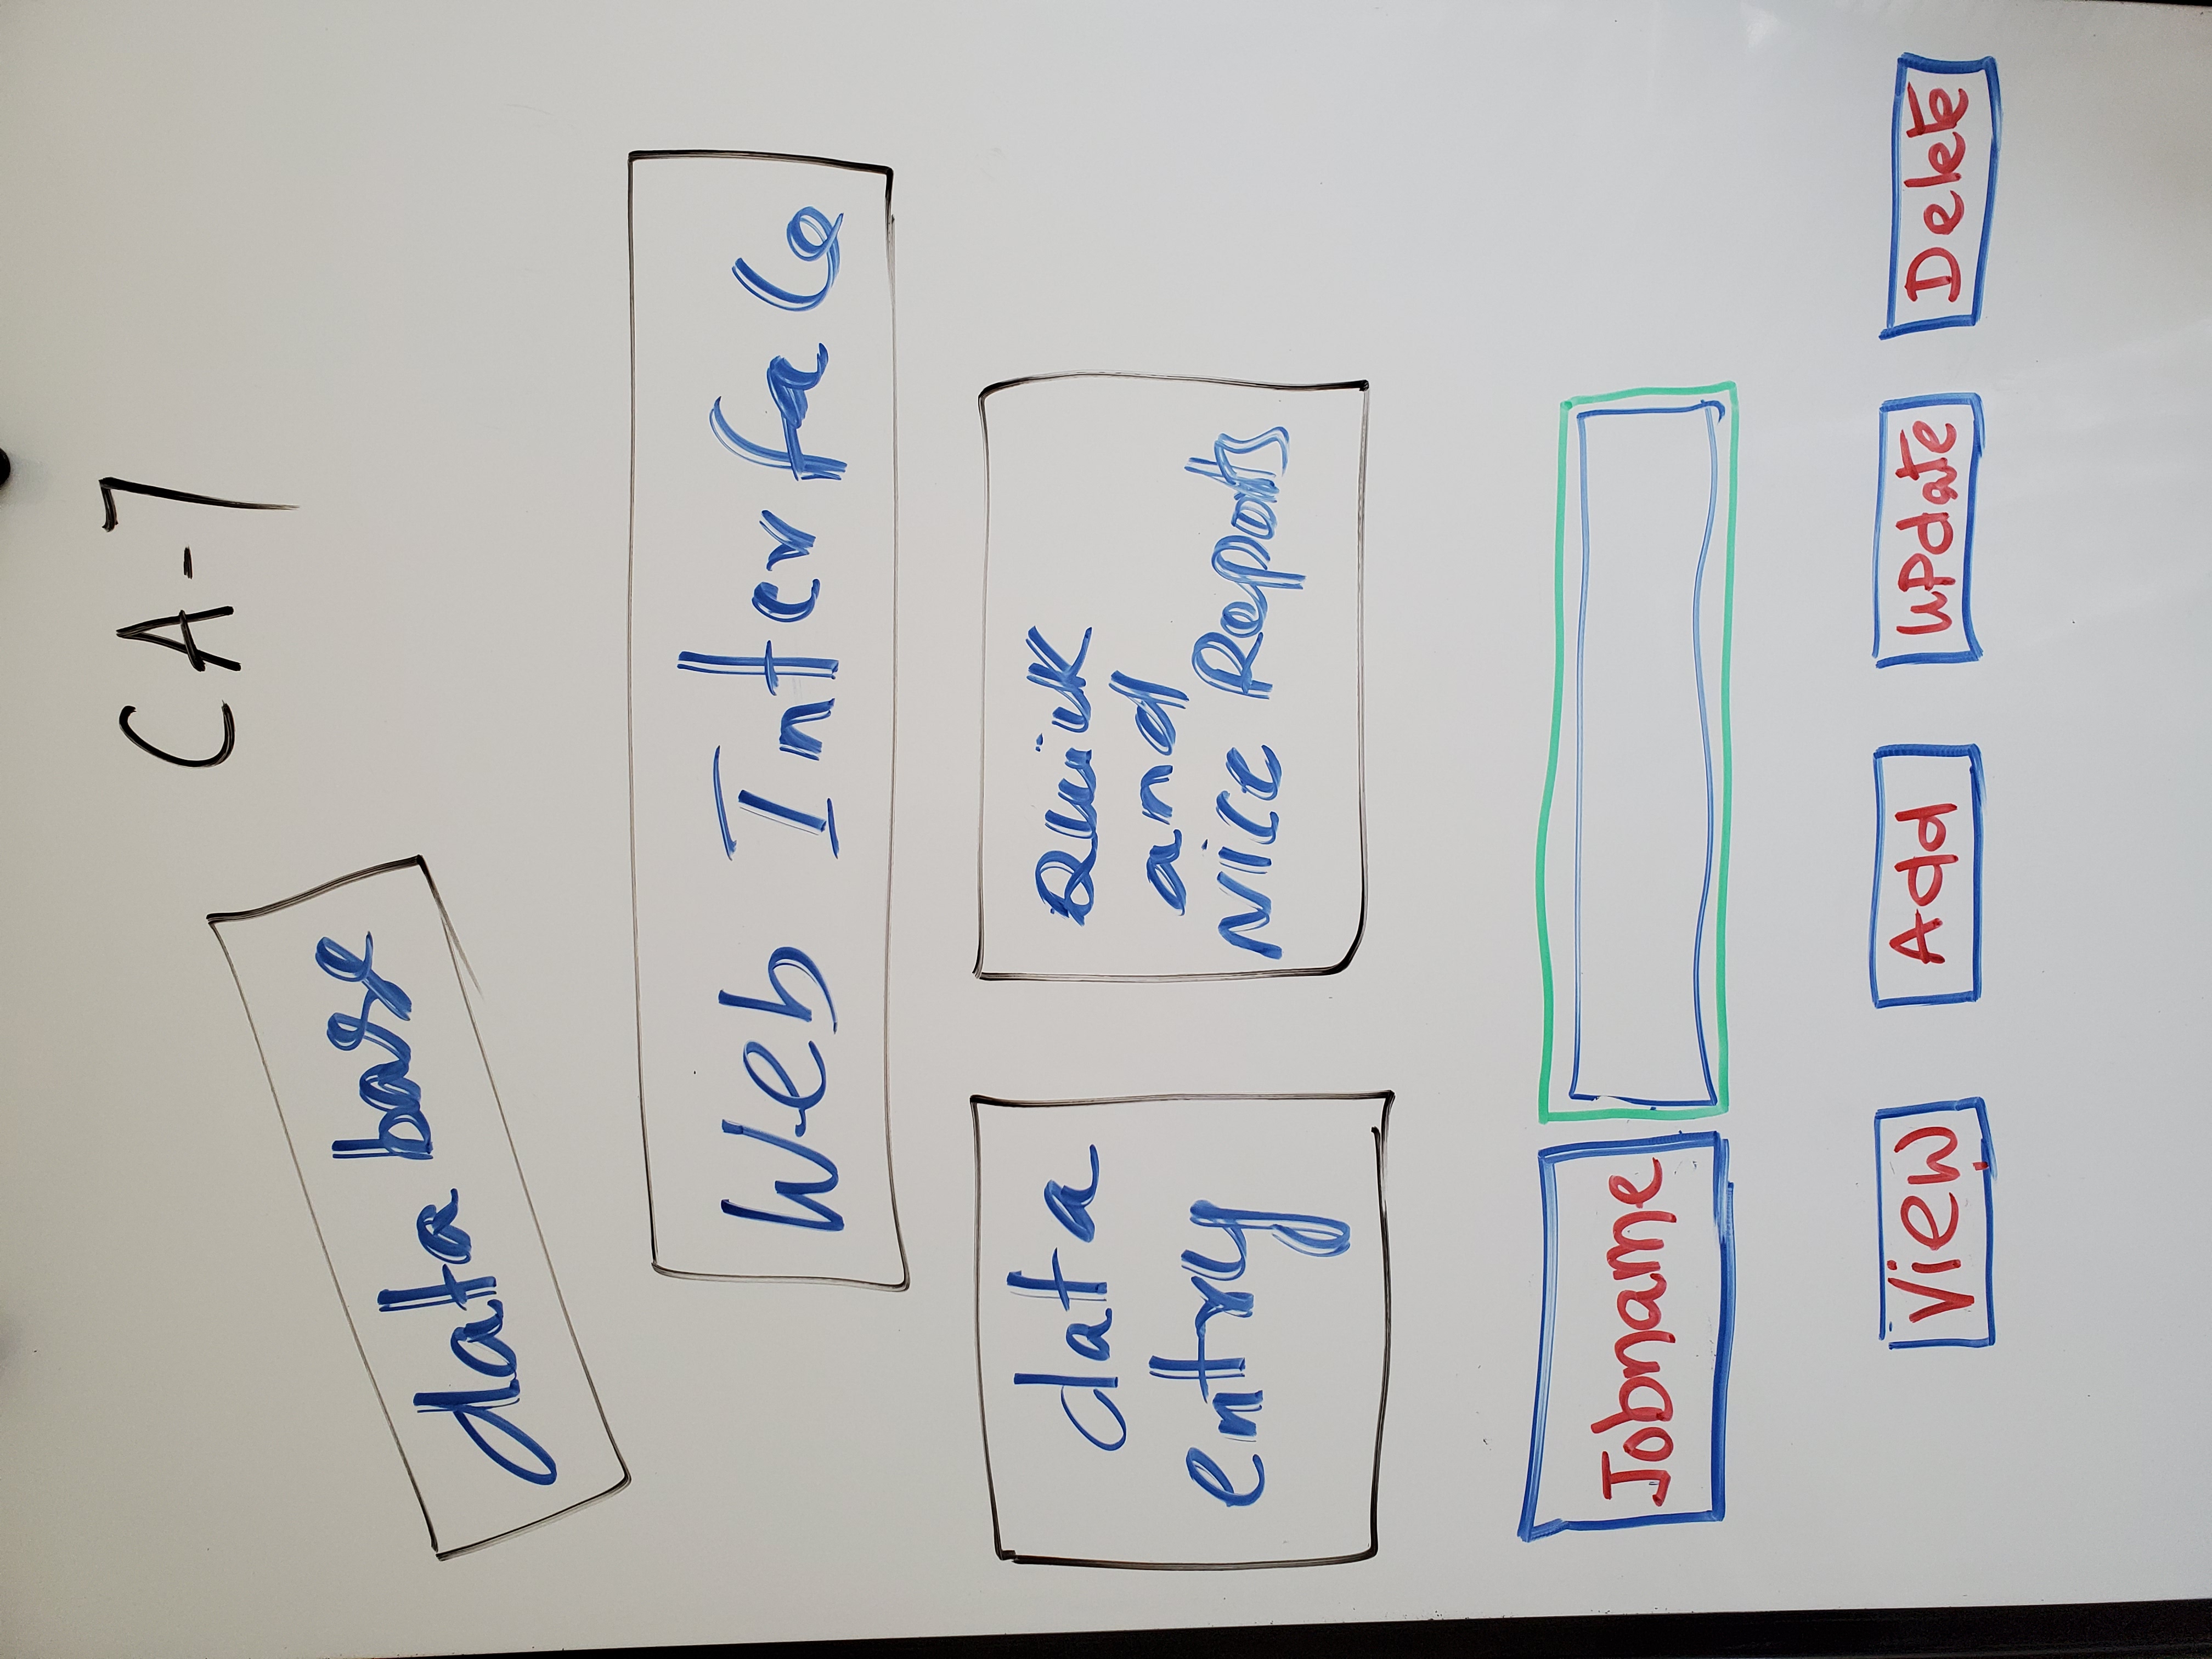 CA-7
data base
Web Interface
data
entry
Quick
and
Nice Reports
Jobname
View
Add
Update
Delete